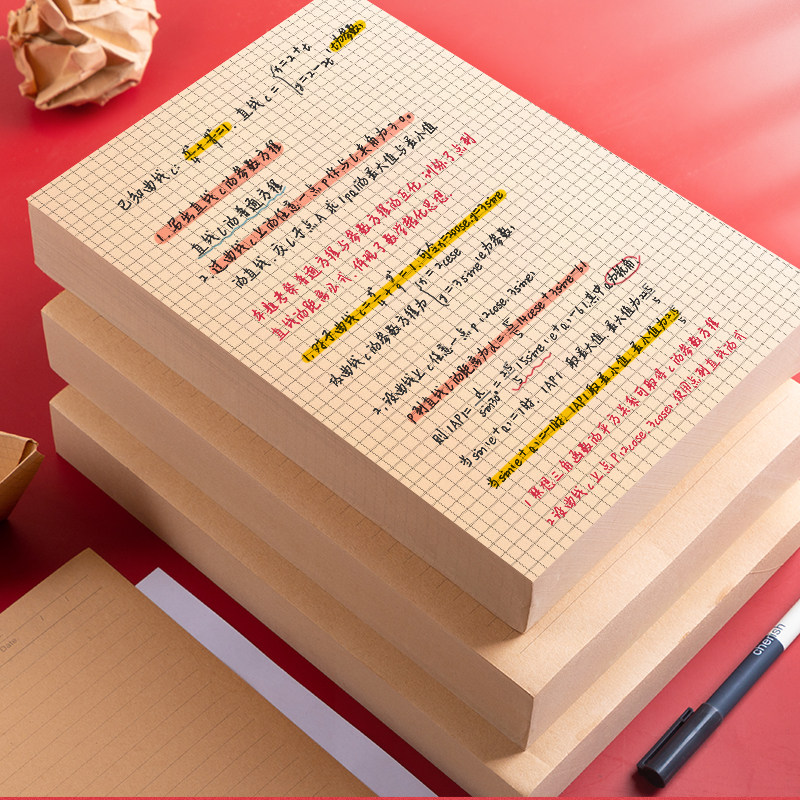 已知曲线C: x²/4 + y²/9 =1. 直线L= {x=2+t (t为参数)
{y=2-2t
1. 写出直线L的参数方程
直线L的普通方程
2. 过曲线C上的任意一点P作与L夹角为30°
的直线, 交L于点A 求|PA|的最大值与最小值
本题考察普通方程与参数方程的互化, 训练了点到
直线的距离公式 体现了数学转化思想.
1. 对于曲线C= x²/4 + y²/9 =1. 可令x=2cosθ, y=3sinθ
故曲线C的参数方程为 {x=2cosθ
{y=3sinθ (θ为参数)
2. 设曲线上C任意一点P(2cosθ, 3sinθ)
P到直线L的距离为d= √5/5 |4cosθ+3sinθ-6|
则|AP|= d/sin30° = 2√5/5 |5sin(θ+α)-6| 其中α为锐角
当sin(θ+α)=-1时. |AP| 取最大值. 最大值为
当sin(θ+α)=1时. |AP|取最小值. 最小值为2√5/5
1. 联想三角函数的平方关系可取得C的参数方程
2. 设曲线C上点P(2cosθ, 3cosθ), 使用点到直线的式
Date
cherish